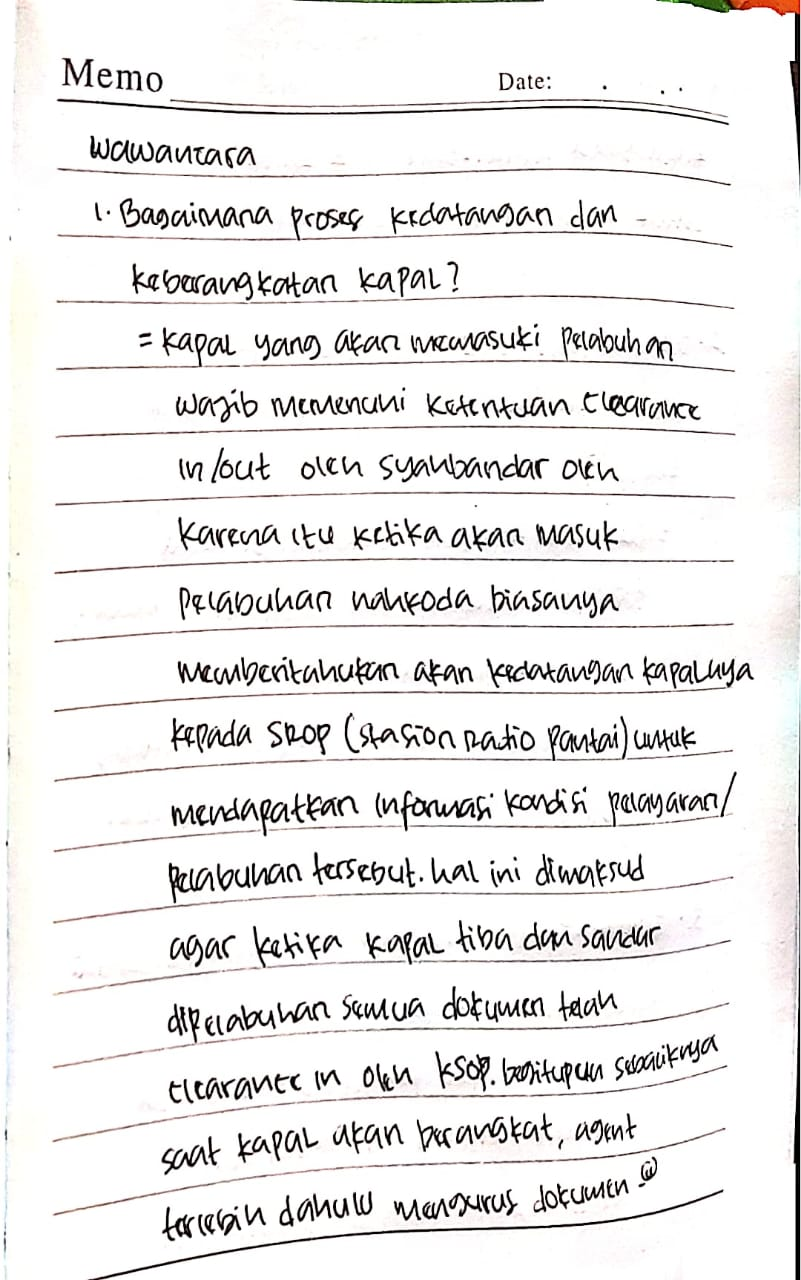 Memo
Date: . . .
Wawancara
1. Bagaimana proses kedatangan dan
keberangkatan kapal?
= kapal yang akan memasuki pelabuhan
wajib memenuhi ketentuan clearance
in/out oleh syahbandar oleh
karena itu ketika akan masuk
pelabuhan nahkoda biasanya
memberitahukan akan kedatangan kapalnya
kepada SROP (stasion Radio Pantai) untuk
mendapatkan informasi kondisi pelayaran/
pelabuhan tersebut. hal ini dimaksud
agar ketika kapal tiba dan sandar
dipelabuhan semua dokumen telah
clearance in oleh KSOP. begitupun sebaliknya
saat kapal akan berangkat, agent
terlebih dahulu mengurus dokumen